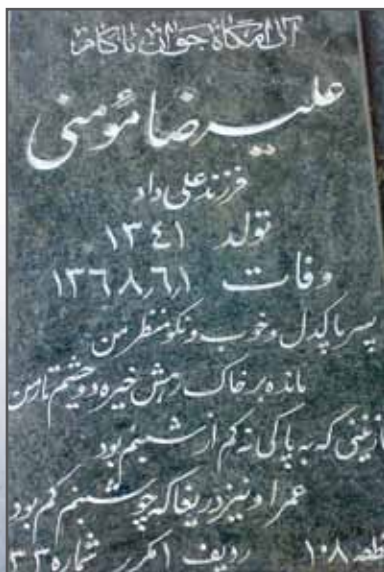 آرامگاه جوان ناکام
علیرضا مؤمنی
فرزند علی داد
تولد ۱۳۴۱
وفات ۱۳۶۸٫۶٫۱
پسر پاکدل و خوب و نکو منظر من
مانده بر خاک رهش خیره دو چشم تر من
نازنینی که به پاکی نه کم از شبنم بود
عمر او نیز دریغا که چو شبنم کم بود
قطعه ۱۰۸ ردیف ۱ مکرر شماره ۳۳